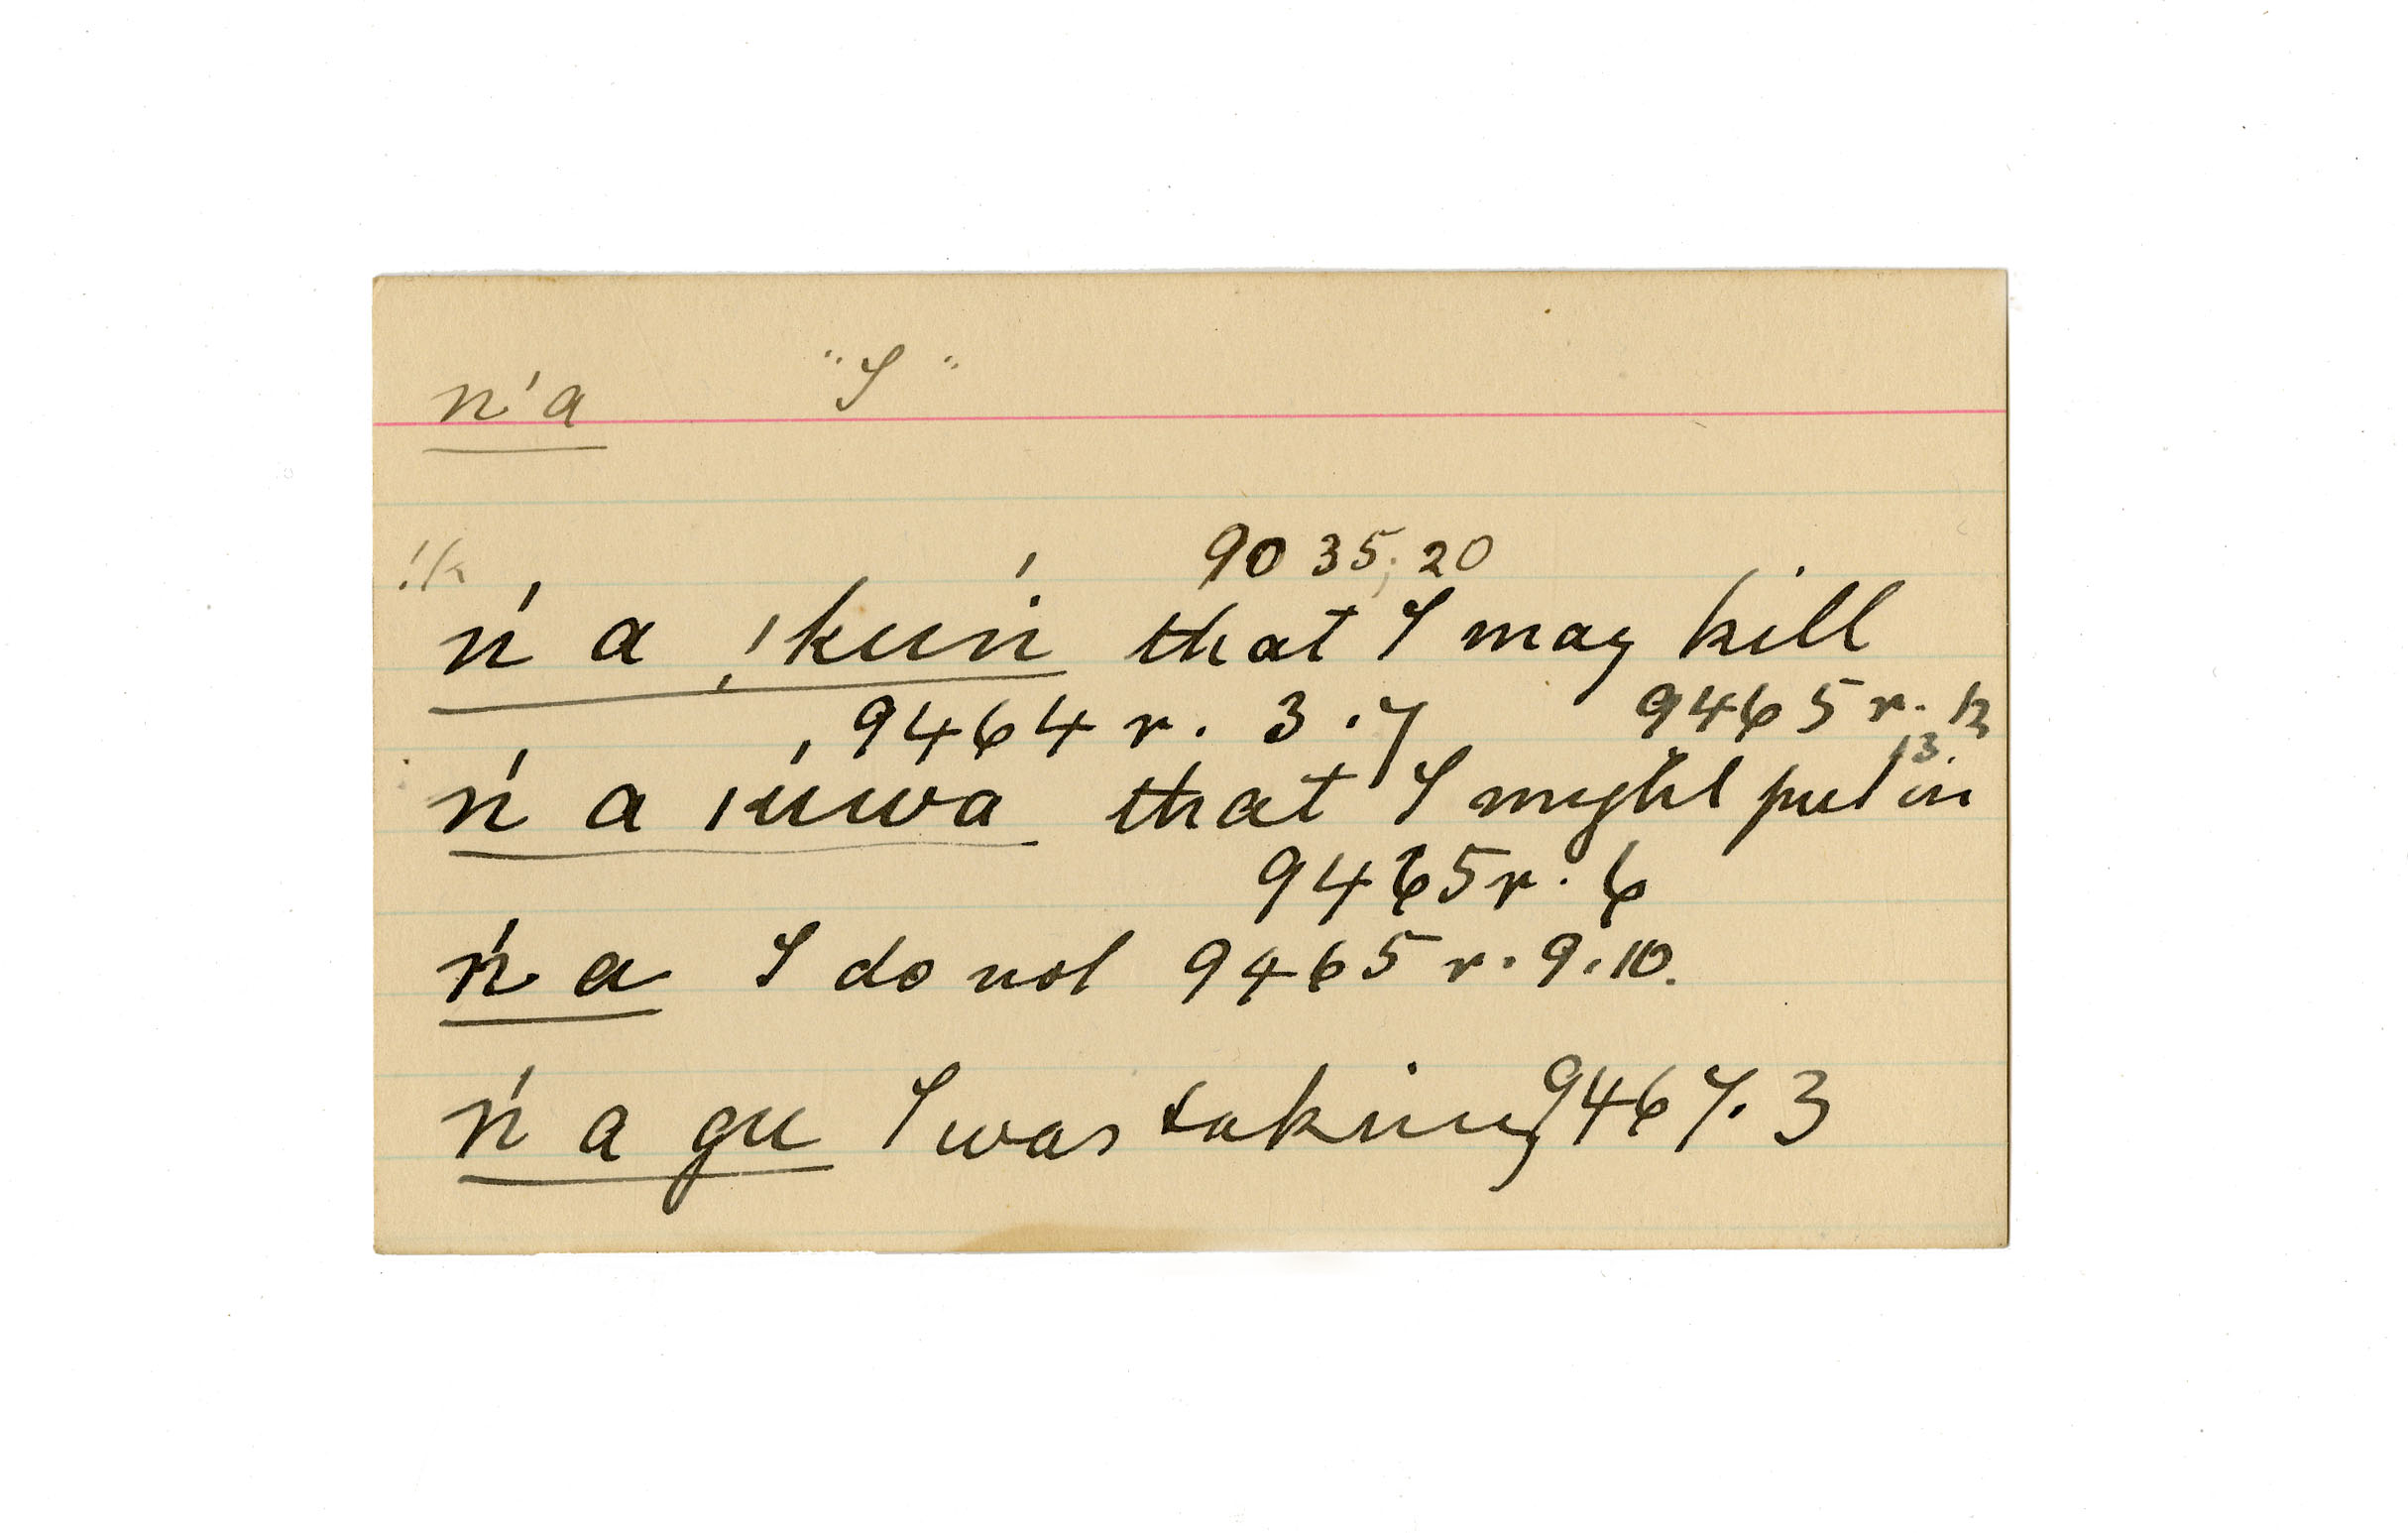 n'a "I"
!k 9035, 20
ń a !kuń that I may kill
9464 r. 3.7 9465 r. 12
13.
ń a /úwa that I might put in
9465 r. 6
ń a I do not 9465 r. 9.10.
ń a gu I was taking 9467. 3